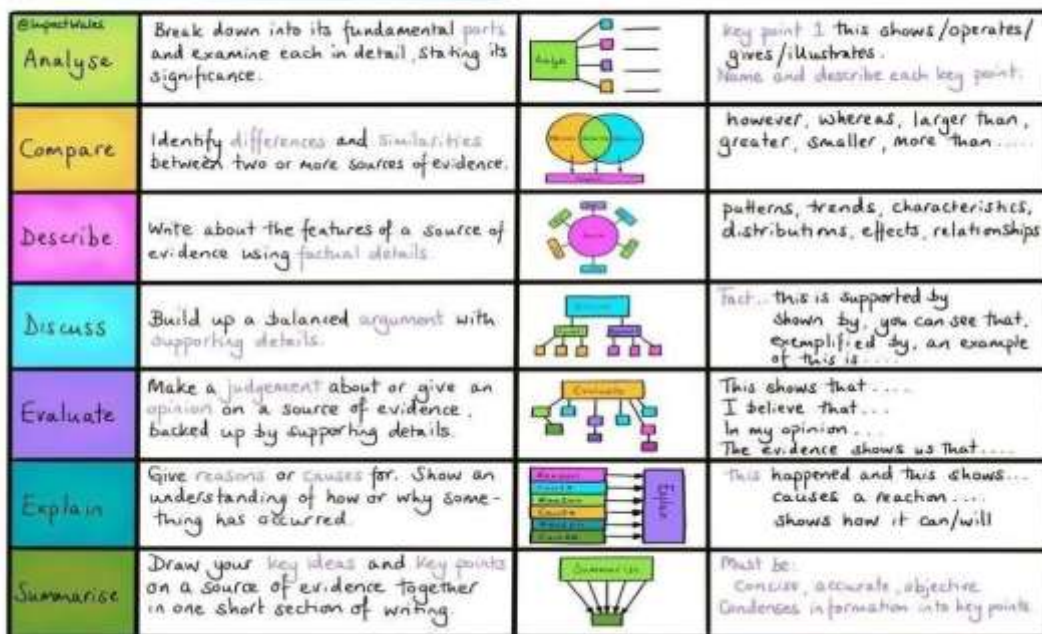 @ImpactWales
Analyse
Break down into its fundamental parts
and examine each in detail, stating its
significance.
Analyse
Key point 1 this shows/operates/
gives/illustrates.
Name and describe each key point.
Compare
Identify differences and similarities
between two or more sources of evidence.
however, whereas, larger than,
greater, smaller, more than.....
Describe
Write about the features of a source of
evidence using factual details.
patterns, trends, characteristics,
distributions, effects, relationships
Discuss
Build up a balanced argument with
supporting details.
Fact.. this is supported by
shown by, you can see that,
exemplified by, an example
of this is....
Evaluate
Make a judgement about or give an
opinion on a source of evidence.
backed up by supporting details.
Evaluate
This shows that....
I believe that...
In my opinion...
The evidence shows us that....
Explain
Give reasons or causes for. Show an
understanding of how or why some-
thing has occurred.
Reason
Cause
Reason
Cause
Reason
Cause
Explain
This happened and this shows...
causes a reaction....
shows how it can/will
Summarise
Draw your key ideas and key points
on a source of evidence together
in one short section of writing.
Summarise
Must be:
Concise, accurate, objective
Condenses information into key points